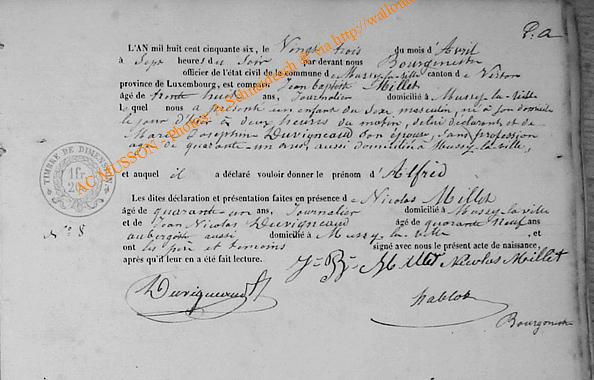 P. A
L'AN mil huit cent cinquante six, le Vingt trois du mois d'Avril
à Sept heures du Soir par devant nous Bourgmestre
officier de l'état civil de la commune de Mussy-la-ville canton de Virton
province de Luxembourg, est comparu Jean Baptiste Millet
âgé de trente huit ans, Journalier domicilié à Mussy-la-Ville
Lequel nous a présenté un enfant du sexe masculin, né à son domicile
le jour d'hier à deux heures du matin, de lui déclarant et de
Marie Josephine Duvigneaud son épouse, sans profession
âgée de quarante un ans, aussi domiciliée à Mussy-la-ville,
et auquel il a déclaré vouloir donner le prénom d'Alfred
Les dites déclaration et présentation faites en présence de Nicolas Millet
âgé de quarante un ans, Journalier domicilié à Mussy-la-ville
et de Jean Nicolas Duvigneaud âgé de quarante neuf ans
aubergiste aussi domicilié à Mussy-la-ville, et
ont les père et témoins signé avec nous le présent acte de naissance,
après qu'il leur en a été fait lecture. J. B. Millet Nicolas Millet
Duvigneaud
Bourgmestre
TIMBRE DE DIMENSION
N° 8
AC MUSSON photos A. Schmidt © via http://wallo